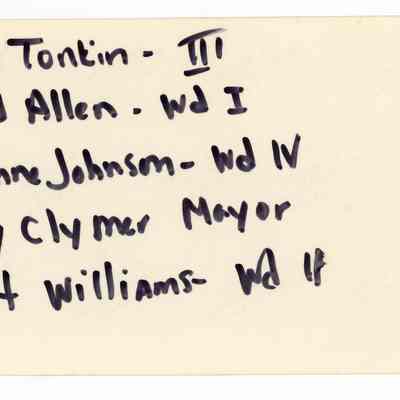 Tontin - III
Allen - Wd I
Johnson - Wd IV
Clymer Mayor
Williams - Wd II